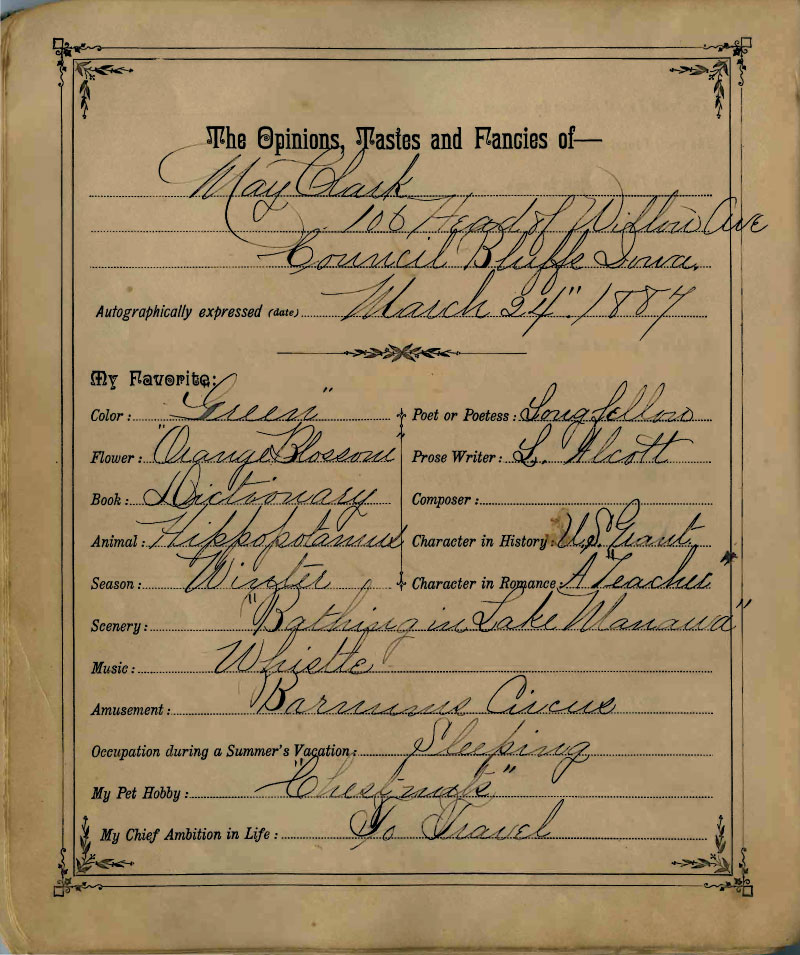 The Opinions, Tastes and Fancies of—
May Clark
106 Head of Willow Ave
Council Bluffs Iowa.
Autographically expressed (date) March 24". 1887
My Favorite:
Color: Green"
Flower: "Orange Blossom"
Book: Dictionary
Animal: Hippopotamus
Season: Winter
Poet or Poetess: Longfellow
Prose Writer: L. Alcott
Composer:
Character in History: U.S. Grant
Character in Romance: A "Teacher"
Scenery: "Bathing in Lake Manawa"
Music: Whistle
Amusement: Barnums Circus
Occupation during a Summer's Vacation: Sleeping
My Pet Hobby: "Chestnuts"
My Chief Ambition in Life: To Travel